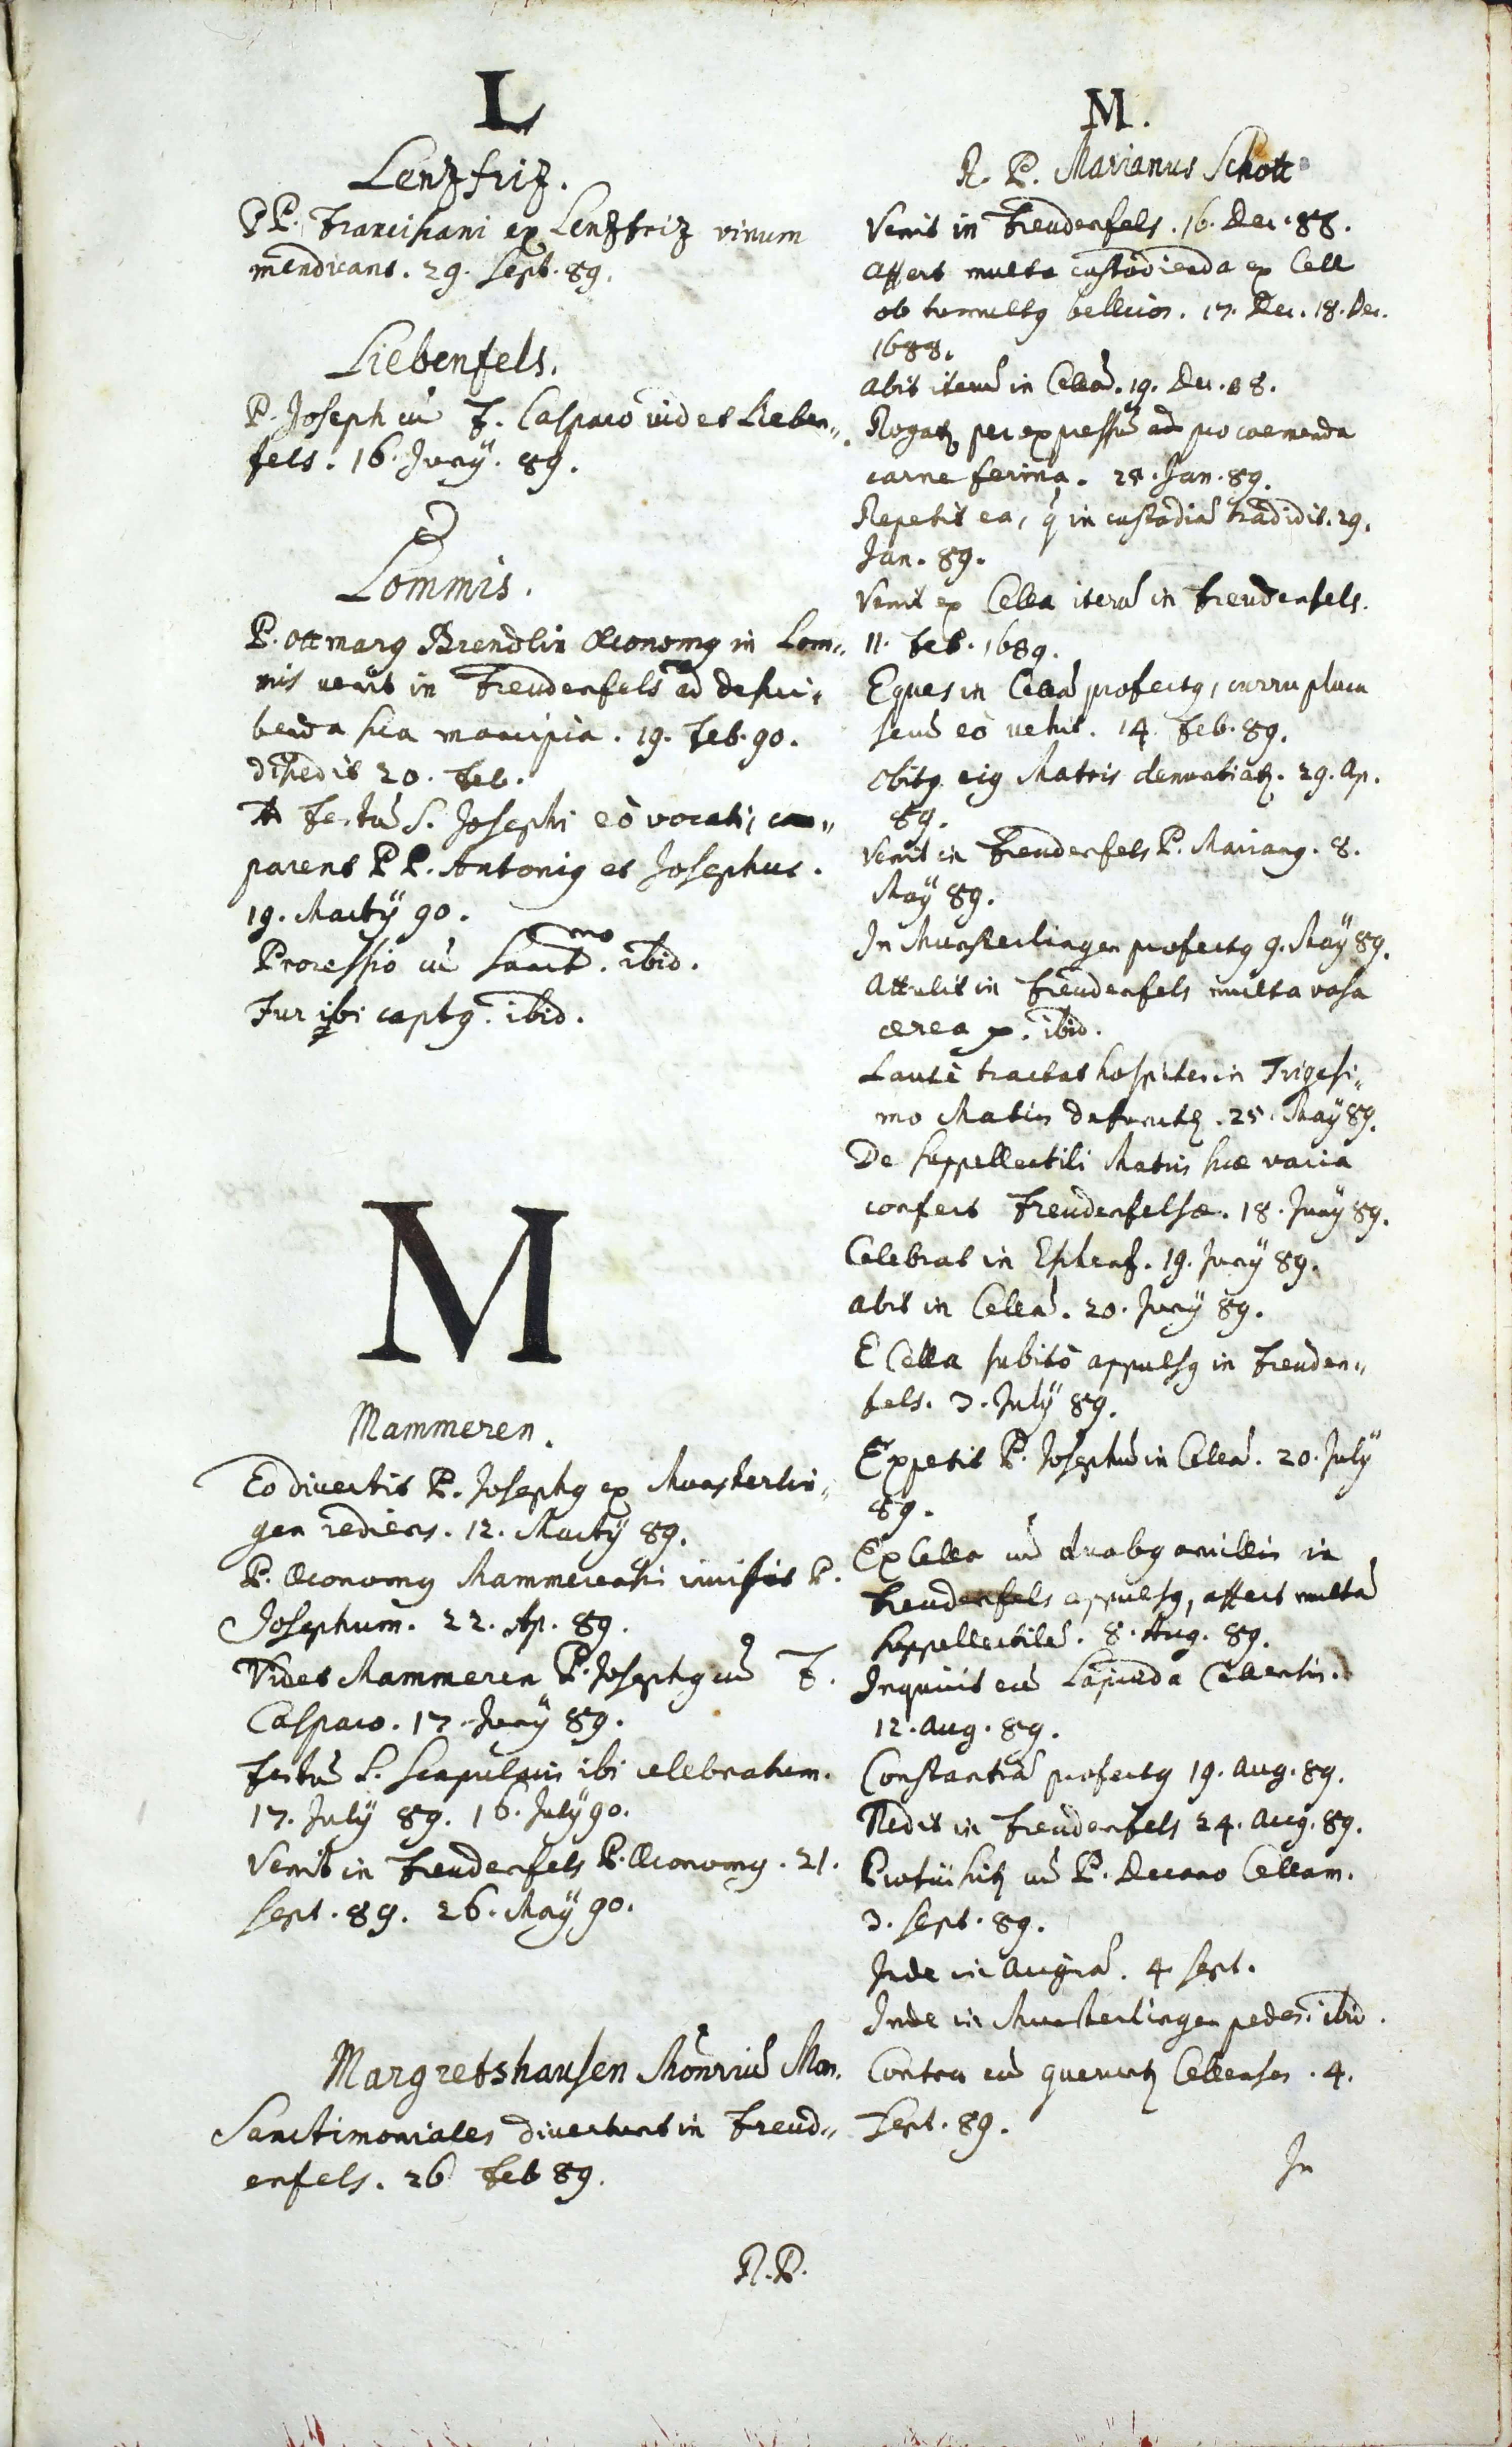 L
Lenzfriz.
PP. Franciscani ex Lenzfriz vinum
mendicant. 29. Sept. 89.
Liebenfels.
P. Joseph cũ F. Casparo videt Lieben„
fels. 16. Juny. 89.
Lommis.
P. Ottmarꝰ Brendlin Œconomꝰ in Lom„
mis venit in Freudenfels ad descri„
benda sua mancipia. 19. Feb. 90.
discedit 20. Feb.
Ad Festũ S. Josephi eò vocati, com„
parent PP. Antoniꝰ et Josephus.
19. Martÿ 90.
Processio cũ Sanct.mo ibid.
Fur ibi captꝰ. ibid.
M
Mammeren.
Eo divertit P. Josephꝰ ex Munsterlin„
gen rediens. 12. Martÿ 89.
P. Œconomꝰ Mammerensis invisit P.
Josephum. 22. Ap. 89.
Videt Mammeren P. Josephꝰ cũ F.
Casparo. 17. Juny 89.
Festũ S. Scapularis ibi celebratum.
17. July 89. 16. July 90.
Venit in Freudenfels P. Œconomꝰ. 21.
Sept. 89. 26. Maÿ 90.
Margretshausen Mon.
Sanctimoniales divertunt in Freud„
enfels. 26 Feb 89.
R.P.
M.
R. P. Marianus Schott
Venit in Freudenfels. 16. Dec. 88.
Affert multa custodienda ex Cell
ob tumultꝰ bellicos. 17. Dec. 18. Dec.
1688.
Abit iterũ in Cellã. 19. Dec. 88.
Rogatꝛ per expressũ pro coemenda
carne ferina. 28. Jan. 89.
Repetit ea, q̃ in custodiã tradidit. 29.
Jan. 89.
Venit ex Cella iterũ in Freudenfels.
11. Feb. 1689.
Eques in Cellã profectꝰ, curru
secũ eò vehit. 14. Feb. 89.
Obitꝰ eiꝰ Matris denuntiatꝛ. 29. Ap.
89.
Venit in Freudenfels P. Marianꝰ. 8.
Maÿ 89.
In Munsterlingen profectꝰ 9. Maÿ 89.
Attulit in Freudenfels multa vasa
ærea ibid.
Lautè tractat hospites in Trigesi„
mo Matris defunctę. 25. Maÿ 89.
De suppellectili Matris suæ varia
confert Freudenfelsæ. 18. Juny 89.
Celebrat in Eschenz. 19. Juny 89.
Abit in Cellã. 20. Juny 89.
E Cella subitò appulsꝰ in Freuden„
fels. 3. July 89.
Expetit P. Josephũ in Cellã. 20. July
89.
Ex Cella cũ duabꝰ ancillis in
Freudenfels appulsꝰ, affert multã
suppellectilẽ. 8. Aug. 89.
Inquirit eũ Cellensis.
12. Aug. 89.
Constantiã profectꝰ 19. Aug. 89.
Redit in Freudenfels 24. Aug. 89.
cũ P. Decano Cellam.
3. Sept. 89.
Inde in Augiã. 4 Sept.
Inde in Munsterlingen pedes. ibid.
Contra eũ queruntꝛ Cellenses. 4.
Sept. 89.
In